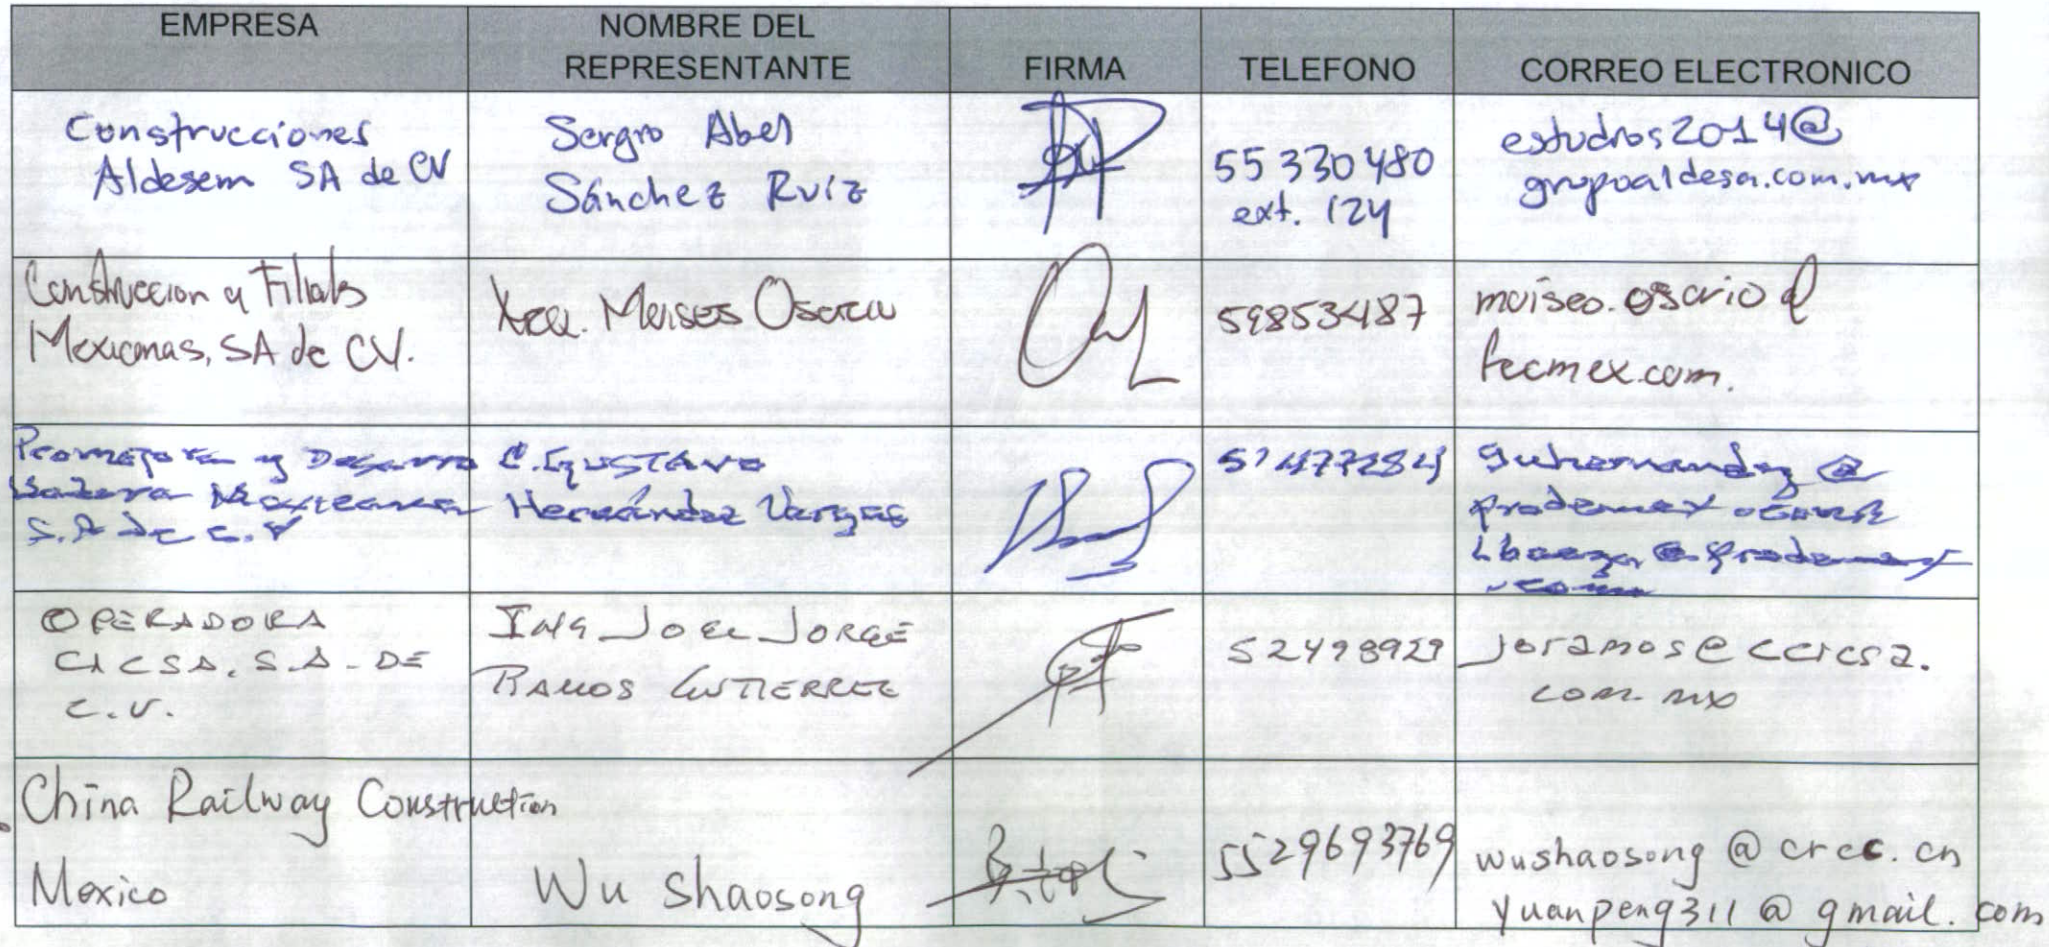 EMPRESA
NOMBRE DEL
REPRESENTANTE
FIRMA
TELEFONO
CORREO ELECTRONICO
Construcciones
Aldesem SA de CV
Sergio Abel
Sánchez Ruíz
55 330480
ext. 124
estudios2014@
grupoaldesa.com.mx
Construccion y Filiales
Mexicanas, SA de CV.
Arq. Moises Osorio
59853487
moises.osorio@
fecmex.com.
y
Mexicana
S.A de C.V
C. Gustavo
Hernández Vargas
51477284
guhernandez@
prodemex.com
@prodemex
.com
OPERADORA
CICSA, S.A. DE
C.V.
ING JOEL JORGE
RAMOS GUTIERREZ
52498929
joramos@ccicsa.
com.mx
China Railway Construction
Mexico
Wu Shaosong
5529693769
wushaosong@crcc.cn
yuanpeng311@gmail.com